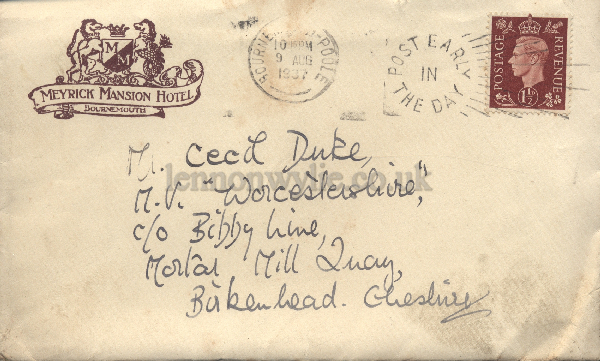 M M
MEYRICK MANSION HOTEL
BOURNEMOUTH
BOURNEMOUTH-POOLE
9 AUG
1937
POST EARLY
IN
THE DAY
POSTAGE
REVENUE
1½D
Mr. Cecil Duke,
M.V. "Worcestershire",
c/o Bibby Line,
Mortar Mill Quay,
Birkenhead. Cheshire
lennonwylie.co.uk